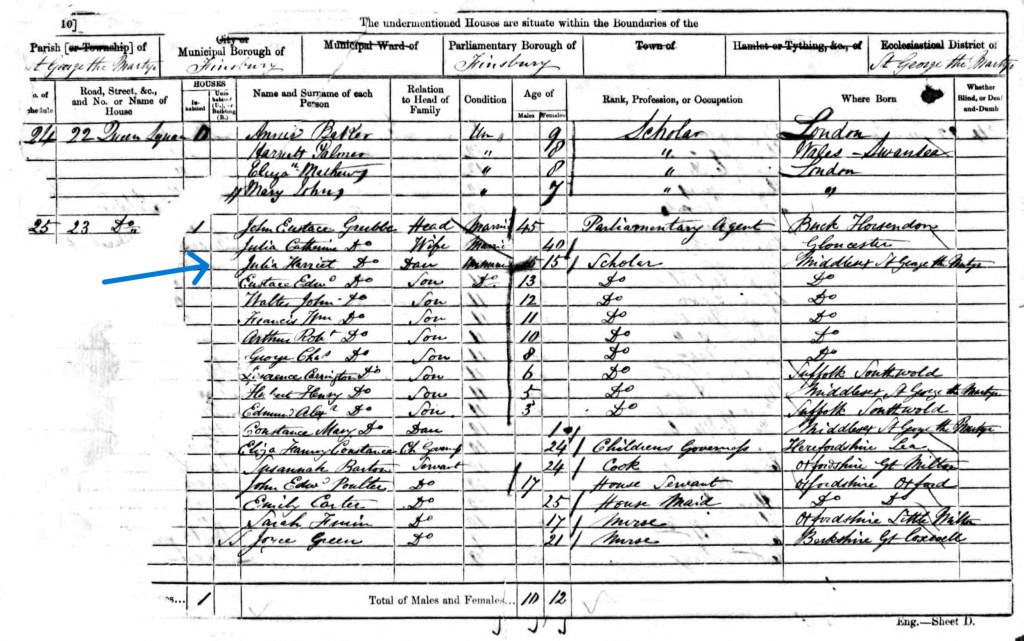 10]
The undermentioned Houses are situate within the Boundaries of the
Parish [or Township] of
St George the Martyr
City or
Municipal Borough of
Finsbury
Municipal Ward of
Parliamentary Borough of
Finsbury
Town of
Hamlet or Tything, &c., of
Ecclesiastical District of
St George the Martyr
HOUSES
o. of
Road, Street, &c., and No. or Name of House
Name and Surname of each Person
Relation to Head of Family
Condition
Age of
Males Females
Rank, Profession, or Occupation
Where Born
Whether Blind, or Deaf-and-Dumb
24 22 Queen Square Annie Baker Un 9 Scholar London
Harriett Palmer " 8 " Wales - Swansea
Eliza Mathews " 8 " London
Mary Johns " 7 " "
25 23 Do 1 John Eustace Grubbe Head Marrd 45 Parliamentary Agent Buck Horsendon
Julia Catherine Do Wife Marrd 40 Gloucester
Julia Harriet Do Daur 15 Scholar Middlesex St George the Martyr
Eustace Edwd Do Son Do 13 Do Do
Walter John Do Son 12 Do Do
Francis Wm Do Son 11 Do Do
Arthur Robt Do Son 10 Do Do
George Chas Do Son 8 Do Do
Lawrence Carrington Do Son 6 Do Suffolk Southwold
Herbert Henry Do Son 5 Do Middlesex St George the Martyr
Edmund Alexr Do Son 3 Do Suffolk Southwold
Constance Mary Do Daur 1 Middlesex St George the Martyr
Eliza Constance Ch Govness 24 Childrens Governess Herefordshire Lea
Susannah Barton Servant 24 Cook Oxfordshire Gt Milton
John Edwd Poulter Do 17 House Servant Oxfordshire Oxford
Emily Carter Do 25 House Maid Do Do
Sarah Do 17 Nurse Oxfordshire Little Milton
Joyce Green Do 21 Nurse Berkshire Gt Coxwell
es... 1 Total of Males and Females... 10 12
Eng.—Sheet D.